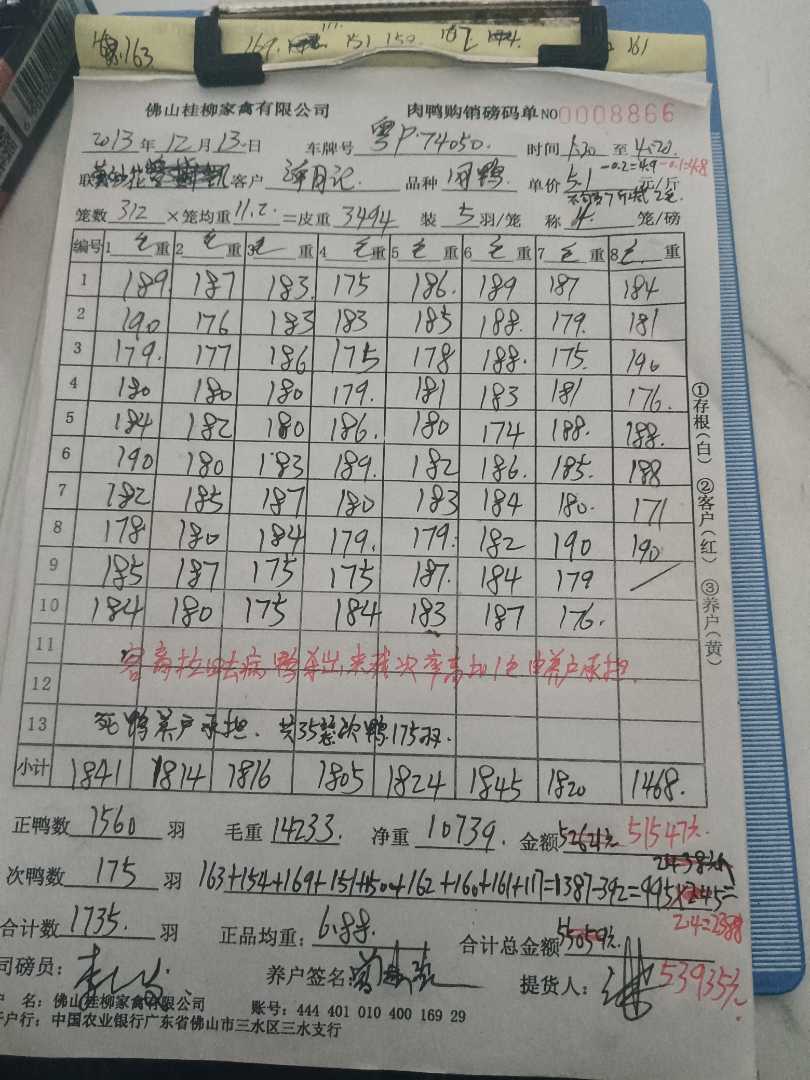 163 169. 151 150. 162 161
佛山桂柳家禽有限公司 肉鸭购销磅码单 NO 0008866
2013年12月13日 车牌号 粤P·74050. 时间 1:30 至 4:20
-0.2=4.9 -0.1=4.8
联 客户 品种 肉鸭 单价 5.1 元/斤
笼数 312 ×笼均重 11.2 =皮重 3494 装 5 羽/笼 称 4 笼/磅
编号 1 毛重 2 毛重 3 毛重 4 毛重 5 毛重 6 毛重 7 毛重 8 毛重
1 189 187 183 175 186. 189 187 184
2 190 176 183 183 185 188. 179. 181
3 179. 177 186 175 178 188. 175. 190
4 180 180 180 179. 181 183 181 176.
5 184 182 180 186. 180 174 188. 188.
6 190 180 183 189. 182 186. 185. 188
7 182 185 187 180 183 184 180. 171
8 178 180 184 179. 179. 182 190 190
9 185 187 175 175 187. 184 179 /
10 184 180 175 184 183 187 176.
11
12
13 死鸭养户承担. 共35笼次鸭175羽.
小计 1841 1814 1816 1805 1824 1845 1820 1468.
正鸭数 1560 羽 毛重 14233. 净重 10739. 金额 52621元 51547元.
次鸭数 175 羽 163+154+169+151+150+162+160+161+117=1387-392=995×2.45=
2438元
2.4=2388
合计数 1735. 羽 正品均重: 6.88. 合计总金额 55059元. 53935元
司磅员: 养户签名: 提货人:
户 名: 佛山桂柳家禽有限公司 账号: 444 401 010 400 169 29
开户行: 中国农业银行广东省佛山市三水区三水支行
①存根(白) ②客户(红) ③养户(黄)